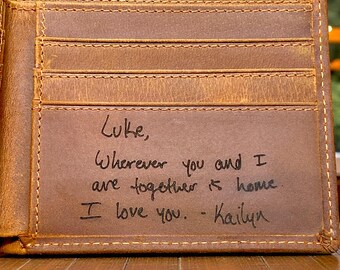 Luke,
Wherever you and I
are together is home
I love you. - Kailyn